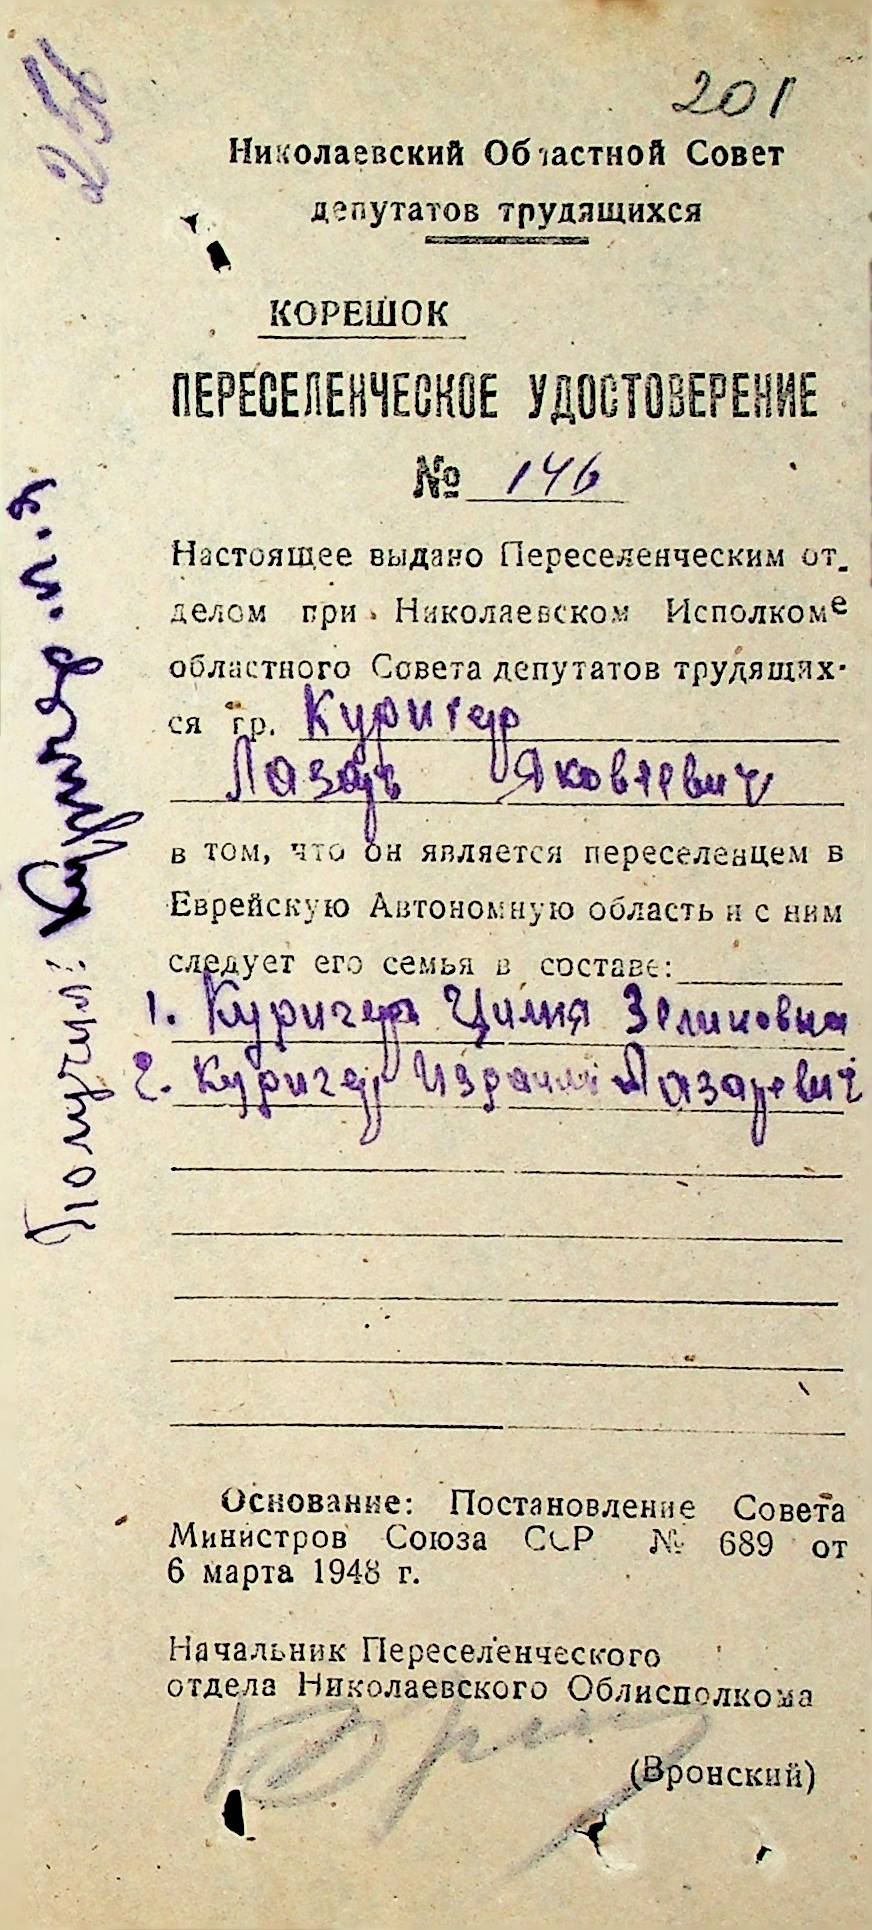 256
201
Николаевский Областной Совет
депутатов трудящихся
КОРЕШОК
ПЕРЕСЕЛЕНЧЕСКОЕ УДОСТОВЕРЕНИЕ
№ 146
Настоящее выдано Переселенческим от-
делом при Николаевском Исполкоме
областного Совета депутатов трудящих-
ся гр. Куригер
Лазарь Яковлевич
в том, что он является переселенцем в
Еврейскую Автономную область и с ним
следует его семья в составе:
1. Куригер Цимля Зеликовна
2. Куригер Израиль Лазаревич
Основание: Постановление Совета
Министров Союза ССР № 689 от
6 марта 1948 г.
Начальник Переселенческого
отдела Николаевского Облисполкома
(Вронский)
Получил: Куригер Л. Я.